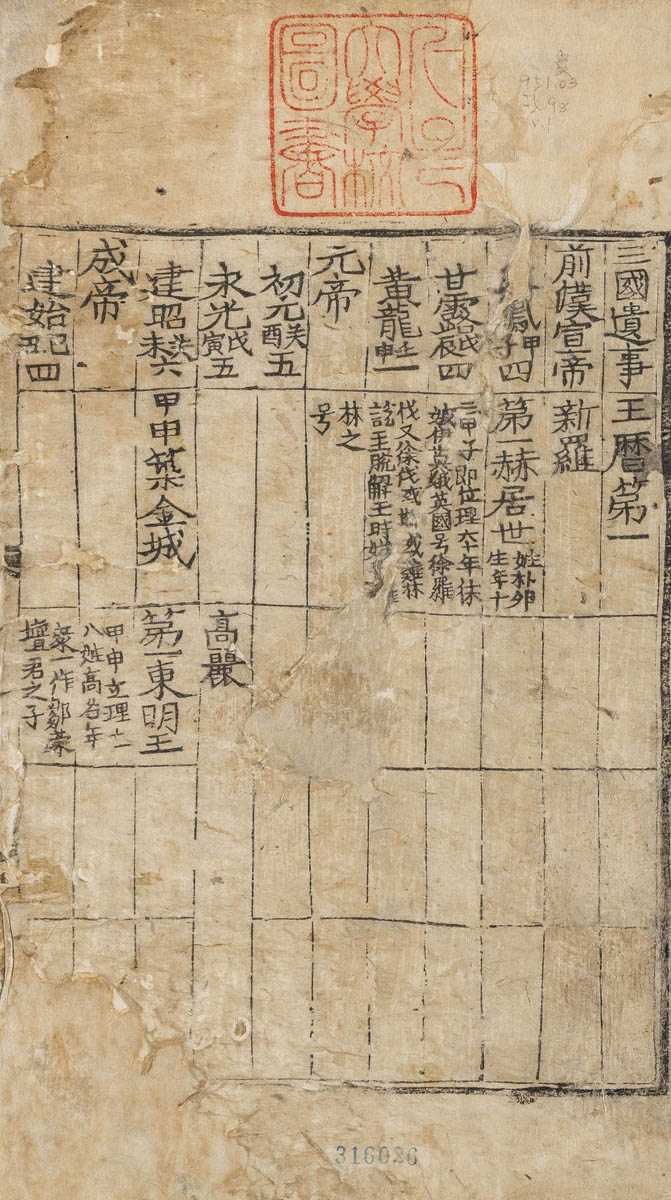 三國遺事王暦第一
前漢宣帝 新羅
鳳甲子四 第一赫居世 姓朴卵生年十
甘露戊辰四 三甲子即位理六十年 娥伊 娥英國号徐羅
黄龍壬申一 伐又徐伐或 或雞林 說王脫解王時始
元帝 林之号
初元癸酉五
永光戊寅五 高麗
建昭癸未六 甲申築金城 第一東明王
成帝 甲申立理十八姓高名
建始己丑四 蒙一作鄒蒙壇君之子
圖書
316026